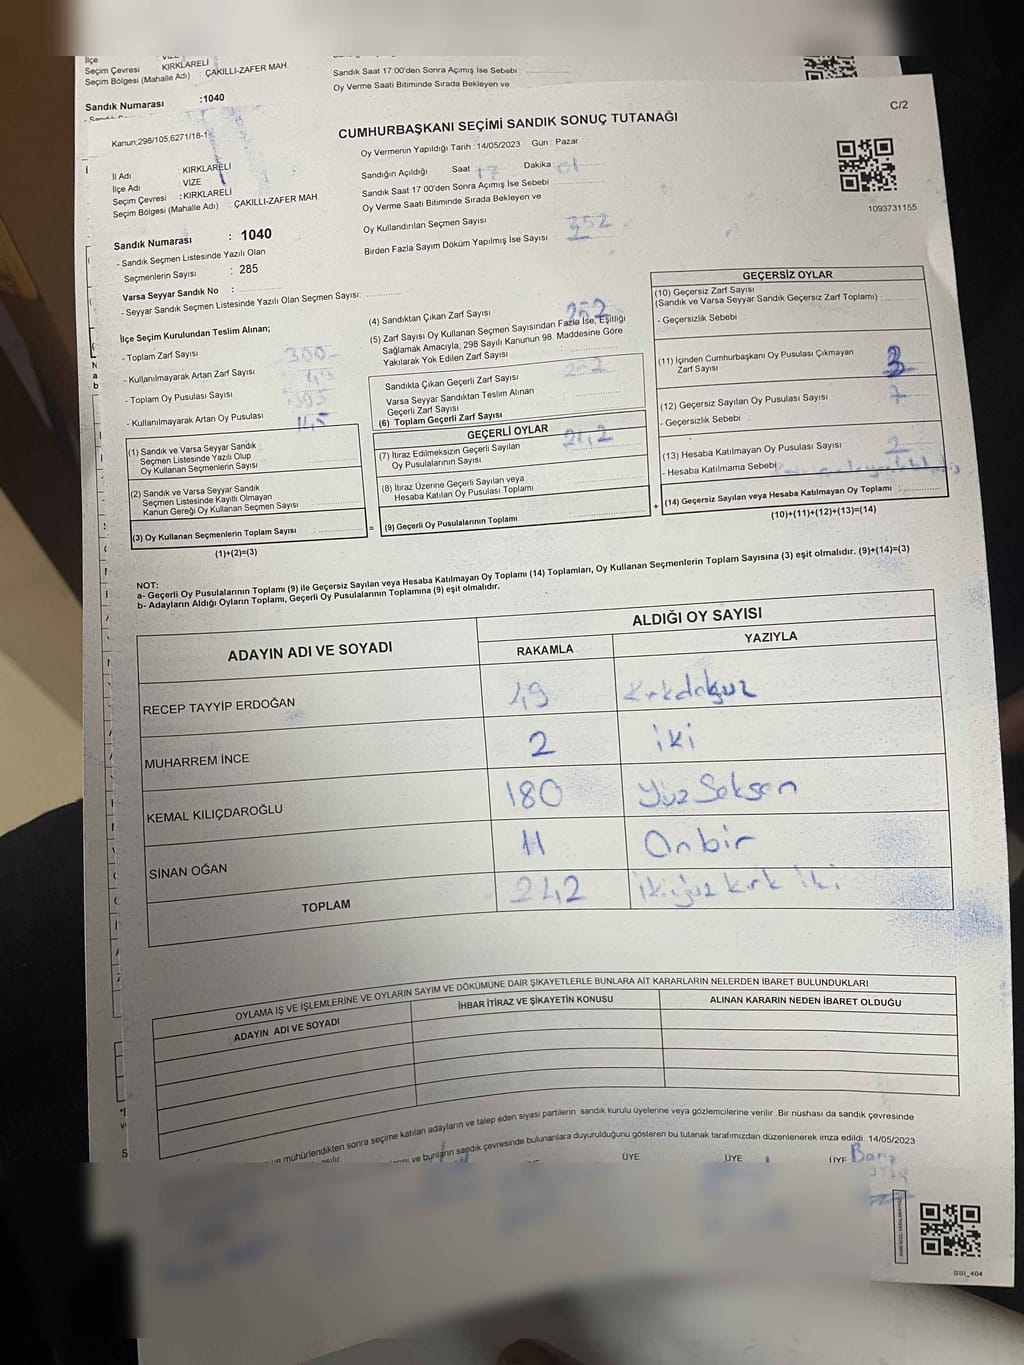 İlçe
Seçim Çevresi KIRKLARELİ
Seçim Bölgesi (Mahalle Adı) ÇAKILLI-ZAFER MAH.
Sandık Saat 17:00'den Sonra Açımış İse Sebebi :
Oy Verme Saati Bitiminde Sırada Bekleyen ve
Sandık Numarası :1040
C/2
Kanun;298/105,6271/18-1
CUMHURBAŞKANI SEÇİMİ SANDIK SONUÇ TUTANAĞI
Oy Vermenin Yapıldığı Tarih :14/05/2023 Gün : Pazar
İl Adı KIRKLARELİ
İlçe Adı : VİZE
Seçim Çevresi : KIRKLARELİ
Seçim Bölgesi (Mahalle Adı) : ÇAKILLI-ZAFER MAH.
Sandığın Açıldığı Saat 17 Dakika 01
Sandık Saat 17 00'den Sonra Açımış İse Sebebi :
Oy Verme Saati Bitiminde Sırada Bekleyen ve
Oy Kullandırılan Seçmen Sayısı
Birden Fazla Sayım Döküm Yapılmış İse Sayısı :
1093731155
Sandık Numarası : 1040
- Sandık Seçmen Listesinde Yazılı Olan
Seçmenlerin Sayısı : 285
Varsa Seyyar Sandık No :
- Seyyar Sandık Seçmen Listesinde Yazılı Olan Seçmen Sayısı:
İlçe Seçim Kurulundan Teslim Alınan;
- Toplam Zarf Sayısı 300
- Kullanılmayarak Artan Zarf Sayısı
- Toplam Oy Pusulası Sayısı
- Kullanılmayarak Artan Oy Pusulası
(1) Sandık ve Varsa Seyyar Sandık
Seçmen Listesinde Yazılı Olup
Oy Kullanan Seçmenlerin Sayısı
(2) Sandık ve Varsa Seyyar Sandık
Seçmen Listesinde Kayıtlı Olmayan
Kanun Gereği Oy Kullanan Seçmen Sayısı
(3) Oy Kullanan Seçmenlerin Toplam Sayısı
(1)+(2)=(3)
(4) Sandıktan Çıkan Zarf Sayısı 252
(5) Zarf Sayısı Oy Kullanan Seçmen Sayısından Fazla İse, Eşitliği
Sağlamak Amacıyla; 298 Sayılı Kanunun 98. Maddesine Göre
Yakılarak Yok Edilen Zarf Sayısı
Sandıkla Çıkan Geçerli Zarf Sayısı
Varsa Seyyar Sandıktan Teslim Alınan
Geçerli Zarf Sayısı
(6) Toplam Geçerli Zarf Sayısı
GEÇERLİ OYLAR
(7) İtiraz Edilmeksizin Geçerli Sayılan
Oy Pusulalarının Sayısı 242
(8) İtiraz Üzerine Geçerli Sayılan veya
Hesaba Katılan Oy Pusulası Toplamı
= (9) Geçerli Oy Pusulalarının Toplamı
GEÇERSİZ OYLAR
(10) Geçersiz Zarf Sayısı
(Sandık ve Varsa Seyyar Sandık Geçersiz Zarf Toplamı) :
- Geçersizlik Sebebi :
(11) İçinden Cumhurbaşkanı Oy Pusulası Çıkmayan
Zarf Sayısı 3
(12) Geçersiz Sayılan Oy Pusulası Sayısı 7
- Geçersizlik Sebebi :
(13) Hesaba Katılmayan Oy Pusulası Sayısı
- Hesaba Katılmama Sebebi
+ (14) Geçersiz Sayılan veya Hesaba Katılmayan Oy Toplamı :
(10)+(11)+(12)+(13)=(14)
NOT:
a- Geçerli Oy Pusulalarının Toplamı (9) ile Geçersiz Sayılan veya Hesaba Katılmayan Oy Toplamı (14) Toplamları, Oy Kullanan Seçmenlerin Toplam Sayısına (3) eşit olmalıdır. (9)+(14)=(3)
b- Adayların Aldığı Oyların Toplamı, Geçerli Oy Pusulalarının Toplamına (9) eşit olmalıdır.
ADAYIN ADI VE SOYADI ALDIĞI OY SAYISI
RAKAMLA YAZIYLA
RECEP TAYYİP ERDOĞAN 49 Kırkdokuz
MUHARREM İNCE 2 iki
KEMAL KILIÇDAROĞLU 180 Yüz Seksen
SİNAN OĞAN 11 Onbir
TOPLAM 242 ikiyüz kırk iki
OYLAMA İŞ VE İŞLEMLERİNE VE OYLARIN SAYIM VE DÖKÜMÜNE DAİR ŞİKAYETLERLE BUNLARA AİT KARARLARIN NELERDEN İBARET BULUNDUKLARI
ADAYIN ADI VE SOYADI İHBAR İTİRAZ VE ŞİKAYETİN KONUSU ALINAN KARARIN NEDEN İBARET OLDUĞU
mühürlendikten sonra seçime katılan adayların ve talep eden siyasi partilerin sandık kurulu üyelerine veya gözlemcilerine verilir Bir nüshası da sandık çevresinde
ve bunların sandık çevresinde bulunanlara duyurulduğunu gösteren bu tutanak tarafımızdan düzenlenerek imza edildi. 14/05/2023
ÜYE ÜYE ÜYE
BBI_404